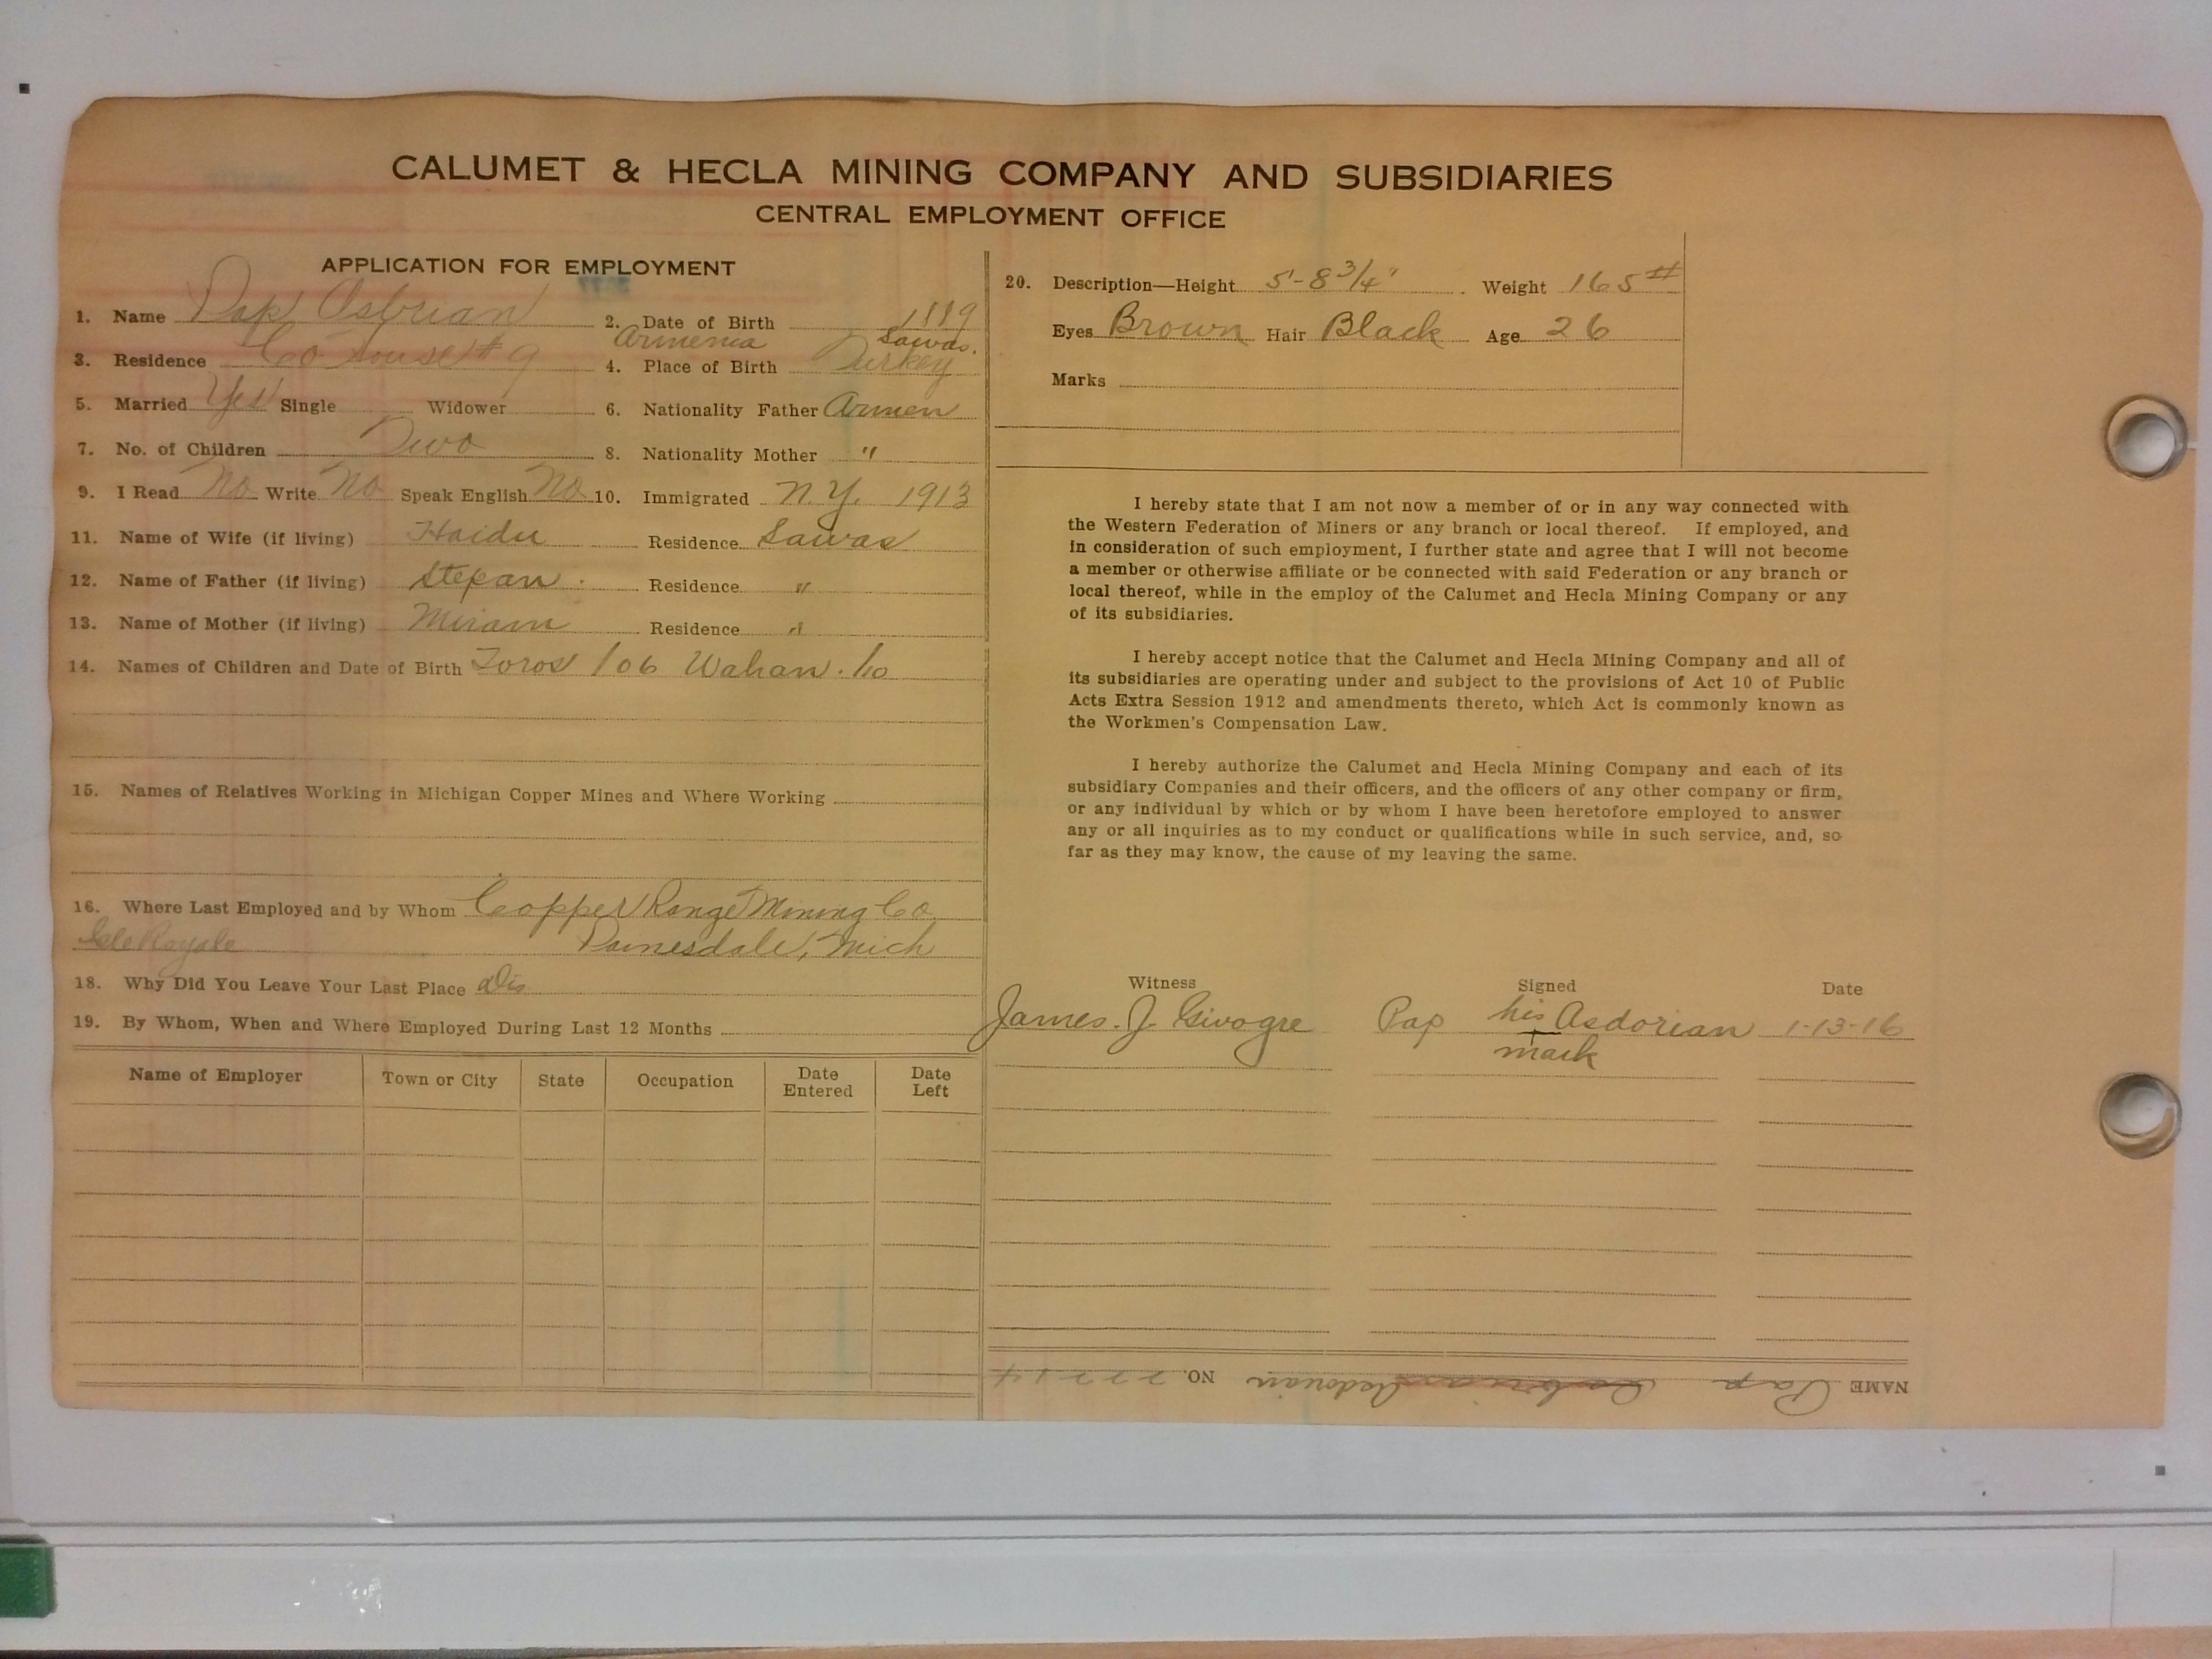 CALUMET & HECLA MINING COMPANY AND SUBSIDIARIES
CENTRAL EMPLOYMENT OFFICE
APPLICATION FOR EMPLOYMENT
1. Name Pap Asbrian 2. Date of Birth 1889
Armenia Sawas.
3. Residence Co House # 9 4. Place of Birth Turkey
5. Married Yes Single Widower 6. Nationality Father Armen
7. No. of Children Two 8. Nationality Mother "
9. I Read No Write No Speak English No 10. Immigrated N.Y. 1913
11. Name of Wife (if living) Haidu Residence Sawas
12. Name of Father (if living) Stepan Residence "
13. Name of Mother (if living) Miram Residence "
14. Names of Children and Date of Birth Toros /06 Wahan . /10
15. Names of Relatives Working in Michigan Copper Mines and Where Working
16. Where Last Employed and by Whom Copper Range Mining Co
Isle Royale Painesdale, Mich
18. Why Did You Leave Your Last Place Dis
19. By Whom, When and Where Employed During Last 12 Months
Name of Employer Town or City State Occupation Date Entered Date Left
20. Description—Height 5'-8 3/4" Weight 165 #
Eyes Brown Hair Black Age 26
Marks
I hereby state that I am not now a member of or in any way connected with
the Western Federation of Miners or any branch or local thereof. If employed, and
in consideration of such employment, I further state and agree that I will not become
a member or otherwise affiliate or be connected with said Federation or any branch or
local thereof, while in the employ of the Calumet and Hecla Mining Company or any
of its subsidiaries.
I hereby accept notice that the Calumet and Hecla Mining Company and all of
its subsidiaries are operating under and subject to the provisions of Act 10 of Public
Acts Extra Session 1912 and amendments thereto, which Act is commonly known as
the Workmen's Compensation Law.
I hereby authorize the Calumet and Hecla Mining Company and each of its
subsidiary Companies and their officers, and the officers of any other company or firm,
or any individual by which or by whom I have been heretofore employed to answer
any or all inquiries as to my conduct or qualifications while in such service, and, so
far as they may know, the cause of my leaving the same.
Witness Signed Date
James. J. Givogre Pap his Asdorian 1-13-16
mark
NAME Pap Asbrian Asdorian NO. 27714